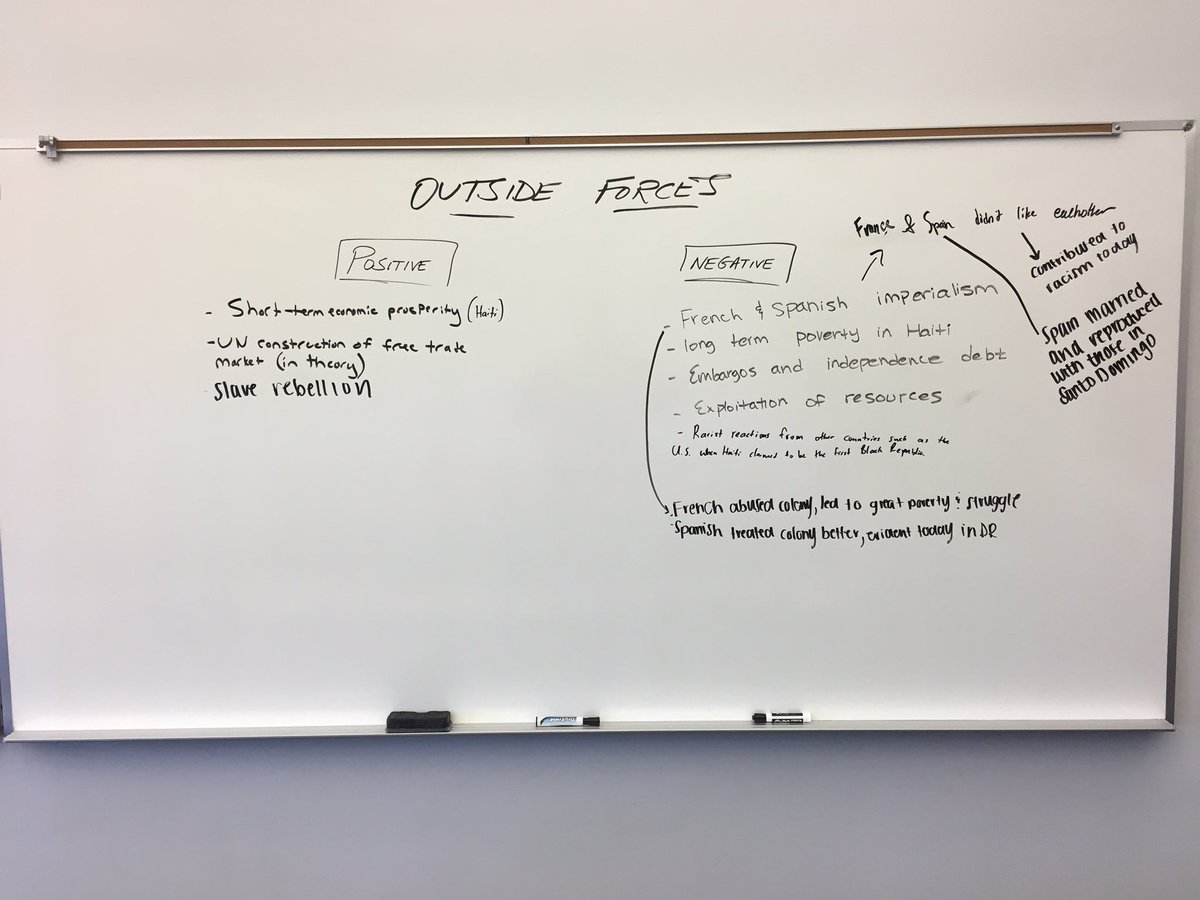 OUTSIDE FORCES
POSITIVE
- Short-term economic prosperity (Haiti)
- UN construction of free trade
market (in theory)
- slave rebellion
NEGATIVE
- French & Spanish imperialism
- long term poverty in Haiti
- Embargos and independence debt
- Exploitation of resources
- Racist reactions from other countries such as the
U.S. when Haiti claimed to be the first Black Republic.
French abused colony, led to great poverty & struggle
Spanish treated colony better, evident today in DR
France & Spain didn't like eachother
contributed to
racism today
Spain married
and reproduced
with those in
Santo Domingo